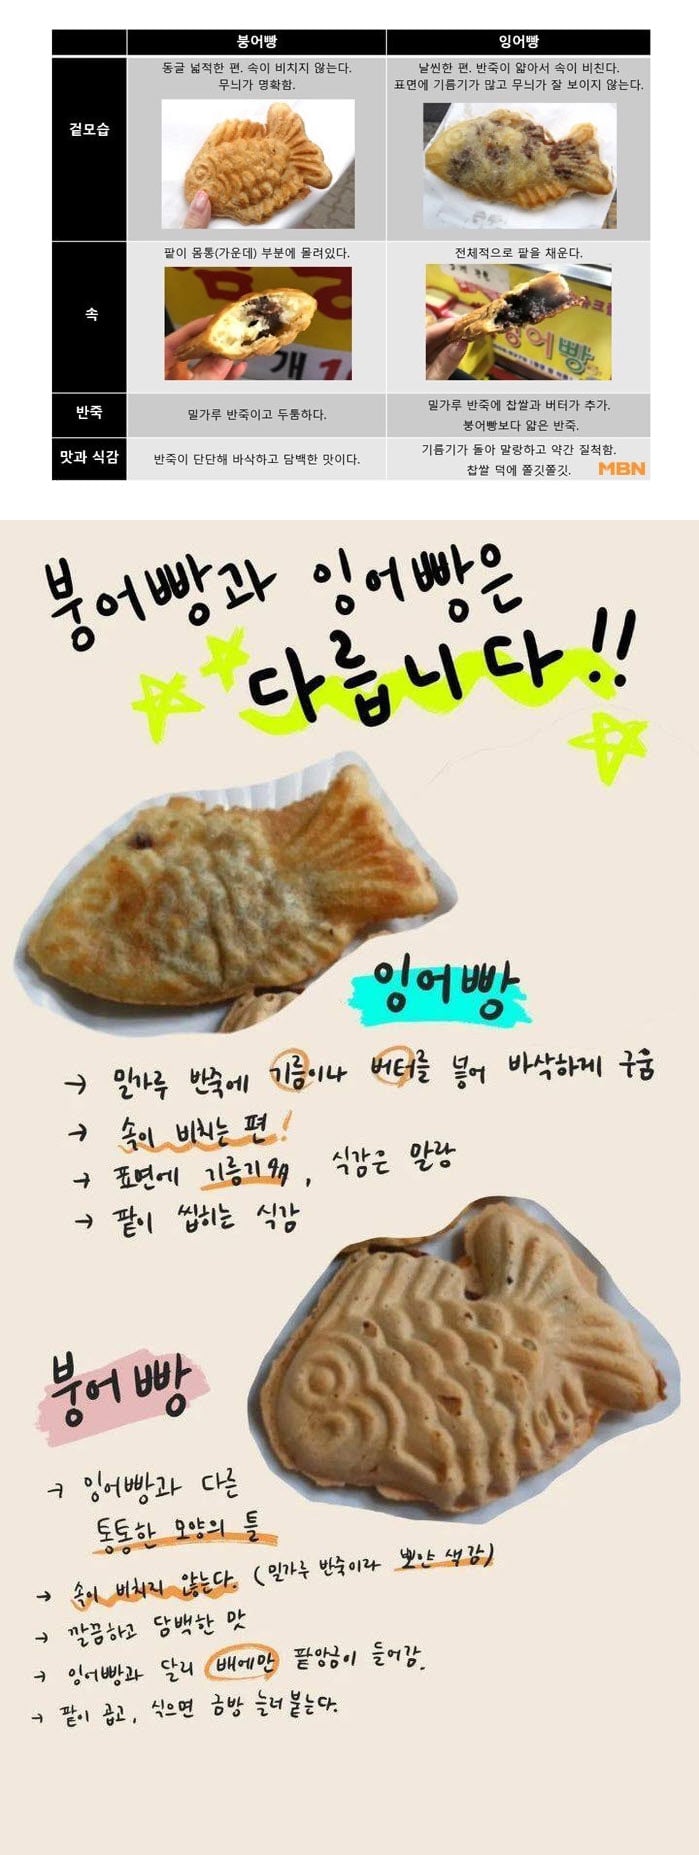 붕어빵
잉어빵
겉모습
동글 넓적한 편. 속이 비치지 않는다.
무늬가 명확함.
날씬한 편. 반죽이 얇아서 속이 비친다.
표면에 기름기가 많고 무늬가 잘 보이지 않는다.
속
팥이 몸통(가운데) 부분에 몰려있다.
전체적으로 팥을 채운다.
개
잉어빵
반죽
밀가루 반죽이고 두툼하다.
밀가루 반죽에 찹쌀과 버터가 추가.
붕어빵보다 얇은 반죽.
맛과 식감
반죽이 단단해 바삭하고 담백한 맛이다.
기름기가 돌아 말랑하고 약간 질척함.
찹쌀 덕에 쫄깃쫄깃.
MBN
붕어빵과 잉어빵은
다릅니다!!
잉어빵
→ 밀가루 반죽에 기름이나 버터를 넣어 바삭하게 구움
→ 속이 비치는 편!
→ 표면에 기름기有, 식감은 말랑
→ 팥이 씹히는 식감
붕어빵
→ 잉어빵과 다른
통통한 모양의 틀
→ 속이 비치지 않는다. (밀가루 반죽이라 뽀얀 색감)
→ 깔끔하고 담백한 맛
→ 잉어빵과 달리 배에만 팥앙금이 들어감.
→ 팥이 곱고, 식으면 금방 눌러붙는다.